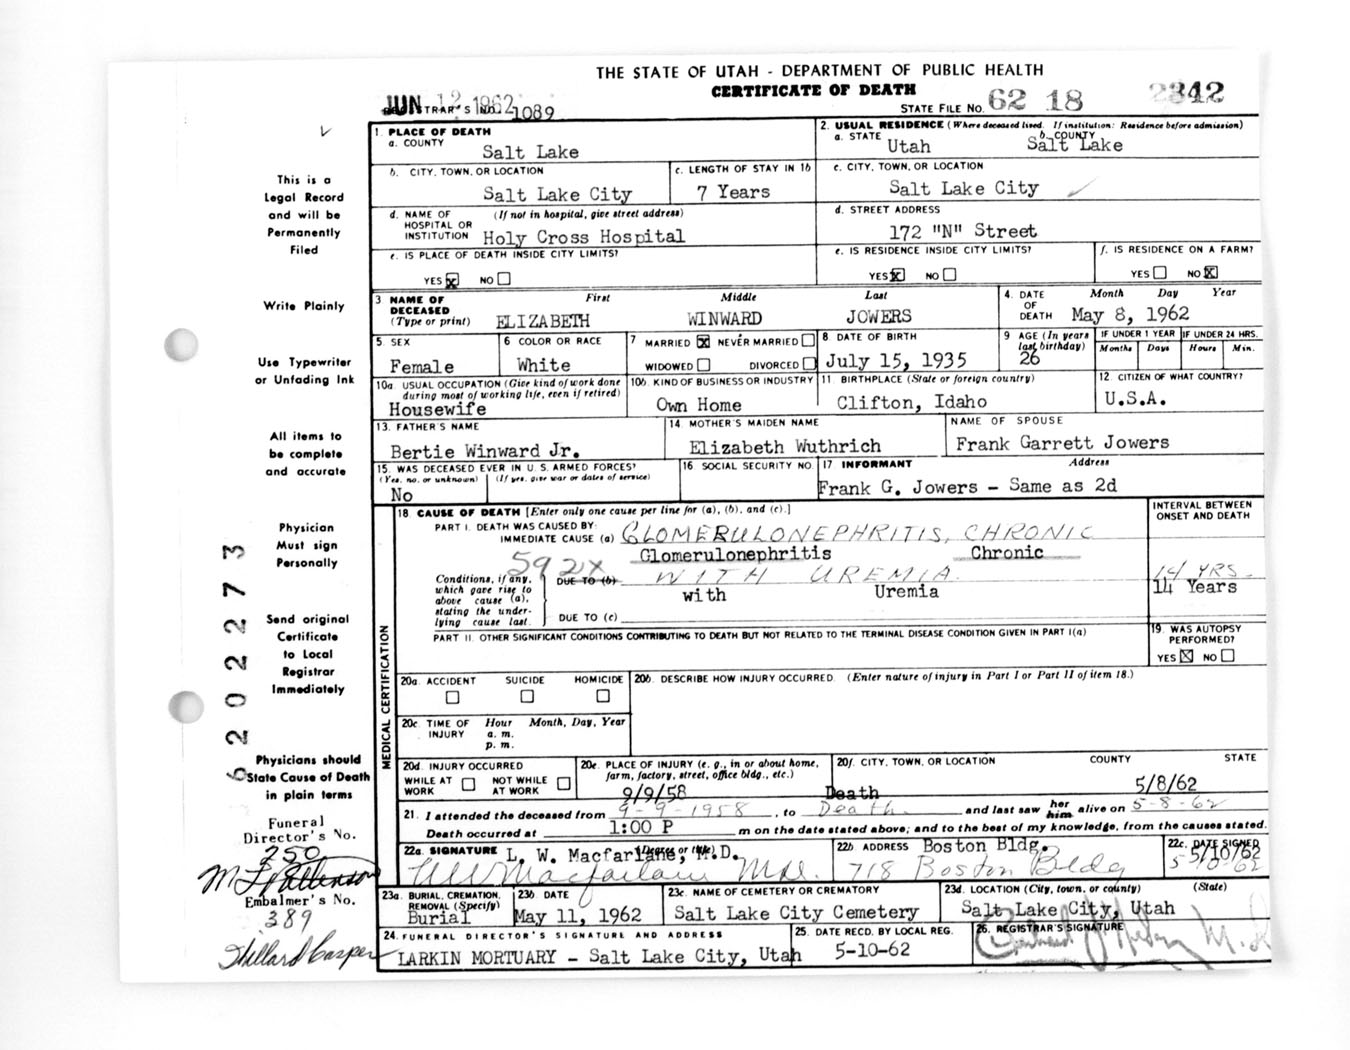 THE STATE OF UTAH - DEPARTMENT OF PUBLIC HEALTH
CERTIFICATE OF DEATH
JUN 12 1962
REGISTRAR'S NO. 1089
STATE FILE NO. 62 18 2342
1. PLACE OF DEATH
a. COUNTY
Salt Lake
2. USUAL RESIDENCE (Where deceased lived. If institution: Residence before admission)
a. STATE Utah
b. COUNTY Salt Lake
b. CITY, TOWN, OR LOCATION
Salt Lake City
c. LENGTH OF STAY IN 1b
7 Years
c. CITY, TOWN, OR LOCATION
Salt Lake City
d. NAME OF HOSPITAL OR INSTITUTION (If not in hospital, give street address)
Holy Cross Hospital
d. STREET ADDRESS
172 "N" Street
e. IS PLACE OF DEATH INSIDE CITY LIMITS?
YES X NO
e. IS RESIDENCE INSIDE CITY LIMITS?
YES X NO
f. IS RESIDENCE ON A FARM?
YES NO X
3 NAME OF DECEASED (Type or print)
First Middle Last
ELIZABETH WINWARD JOWERS
4. DATE OF DEATH Month Day Year
May 8, 1962
5. SEX
Female
6 COLOR OR RACE
White
7 MARRIED X NEVER MARRIED
WIDOWED DIVORCED
8 DATE OF BIRTH
July 15, 1935
9 AGE (In years last birthday)
26
IF UNDER 1 YEAR IF UNDER 24 HRS.
Months Days Hours Min.
10a. USUAL OCCUPATION (Give kind of work done during most of working life, even if retired)
Housewife
10b. KIND OF BUSINESS OR INDUSTRY
Own Home
11. BIRTHPLACE (State or foreign country)
Clifton, Idaho
12. CITIZEN OF WHAT COUNTRY?
U.S.A.
13. FATHER'S NAME
Bertie Winward Jr.
14. MOTHER'S MAIDEN NAME
Elizabeth Wuthrich
NAME OF SPOUSE
Frank Garrett Jowers
15. WAS DECEASED EVER IN U. S. ARMED FORCES?
(Yes, no, or unknown) (If yes, give war or dates of service)
No
16 SOCIAL SECURITY NO.
17 INFORMANT Address
Frank G. Jowers - Same as 2d
MEDICAL CERTIFICATION
18 CAUSE OF DEATH [Enter only one cause per line for (a), (b), and (c).]
INTERVAL BETWEEN ONSET AND DEATH
PART I. DEATH WAS CAUSED BY:
IMMEDIATE CAUSE (a) GLOMERULONEPHRITIS, CHRONIC
Glomerulonephritis Chronic
592X
Conditions, if any, which gave rise to above cause (a), stating the underlying cause last.
DUE TO (b) WITH UREMIA 14 YRS.
with Uremia 14 Years
DUE TO (c)
PART II. OTHER SIGNIFICANT CONDITIONS CONTRIBUTING TO DEATH BUT NOT RELATED TO THE TERMINAL DISEASE CONDITION GIVEN IN PART I(a)
19. WAS AUTOPSY PERFORMED?
YES X NO
20a. ACCIDENT SUICIDE HOMICIDE
20b. DESCRIBE HOW INJURY OCCURRED. (Enter nature of injury in Part I or Part II of item 18.)
20c. TIME OF INJURY Hour Month, Day, Year
a. m.
p. m.
20d. INJURY OCCURRED
WHILE AT WORK NOT WHILE AT WORK
20e. PLACE OF INJURY (e. g., in or about home, farm, factory, street, office bldg., etc.)
20f. CITY, TOWN, OR LOCATION COUNTY STATE
9/9/58 Death 5/8/62
21. I attended the deceased from 9-9-1958, to Death and last saw her him alive on 5-8-62
Death occurred at 1:00 P m on the date stated above; and to the best of my knowledge, from the causes stated.
22a. SIGNATURE (Degree or title)
L. W. Macfarlane, M.D.
LW Macfarlane M.D.
22b. ADDRESS Boston Bldg.
718 Boston Bldg
22c. DATE SIGNED
5/10/62
5 10 62
23a. BURIAL, CREMATION, REMOVAL (Specify)
Burial
23b. DATE
May 11, 1962
23c. NAME OF CEMETERY OR CREMATORY
Salt Lake City Cemetery
23d. LOCATION (City, town, or county) (State)
Salt Lake City, Utah
24. FUNERAL DIRECTOR'S SIGNATURE AND ADDRESS
LARKIN MORTUARY - Salt Lake City, Utah
25. DATE RECD. BY LOCAL REG.
5-10-62
26. REGISTRAR'S SIGNATURE
M.D.
This is a
Legal Record
and will be
Permanently
Filed
Write Plainly
Use Typewriter
or Unfading Ink
All items to
be complete
and accurate
Physician
Must sign
Personally
Send original
Certificate
to Local
Registrar
Immediately
Physicians should
State Cause of Death
in plain terms
620202273
Funeral
Director's No.
250
Embalmer's No.
389